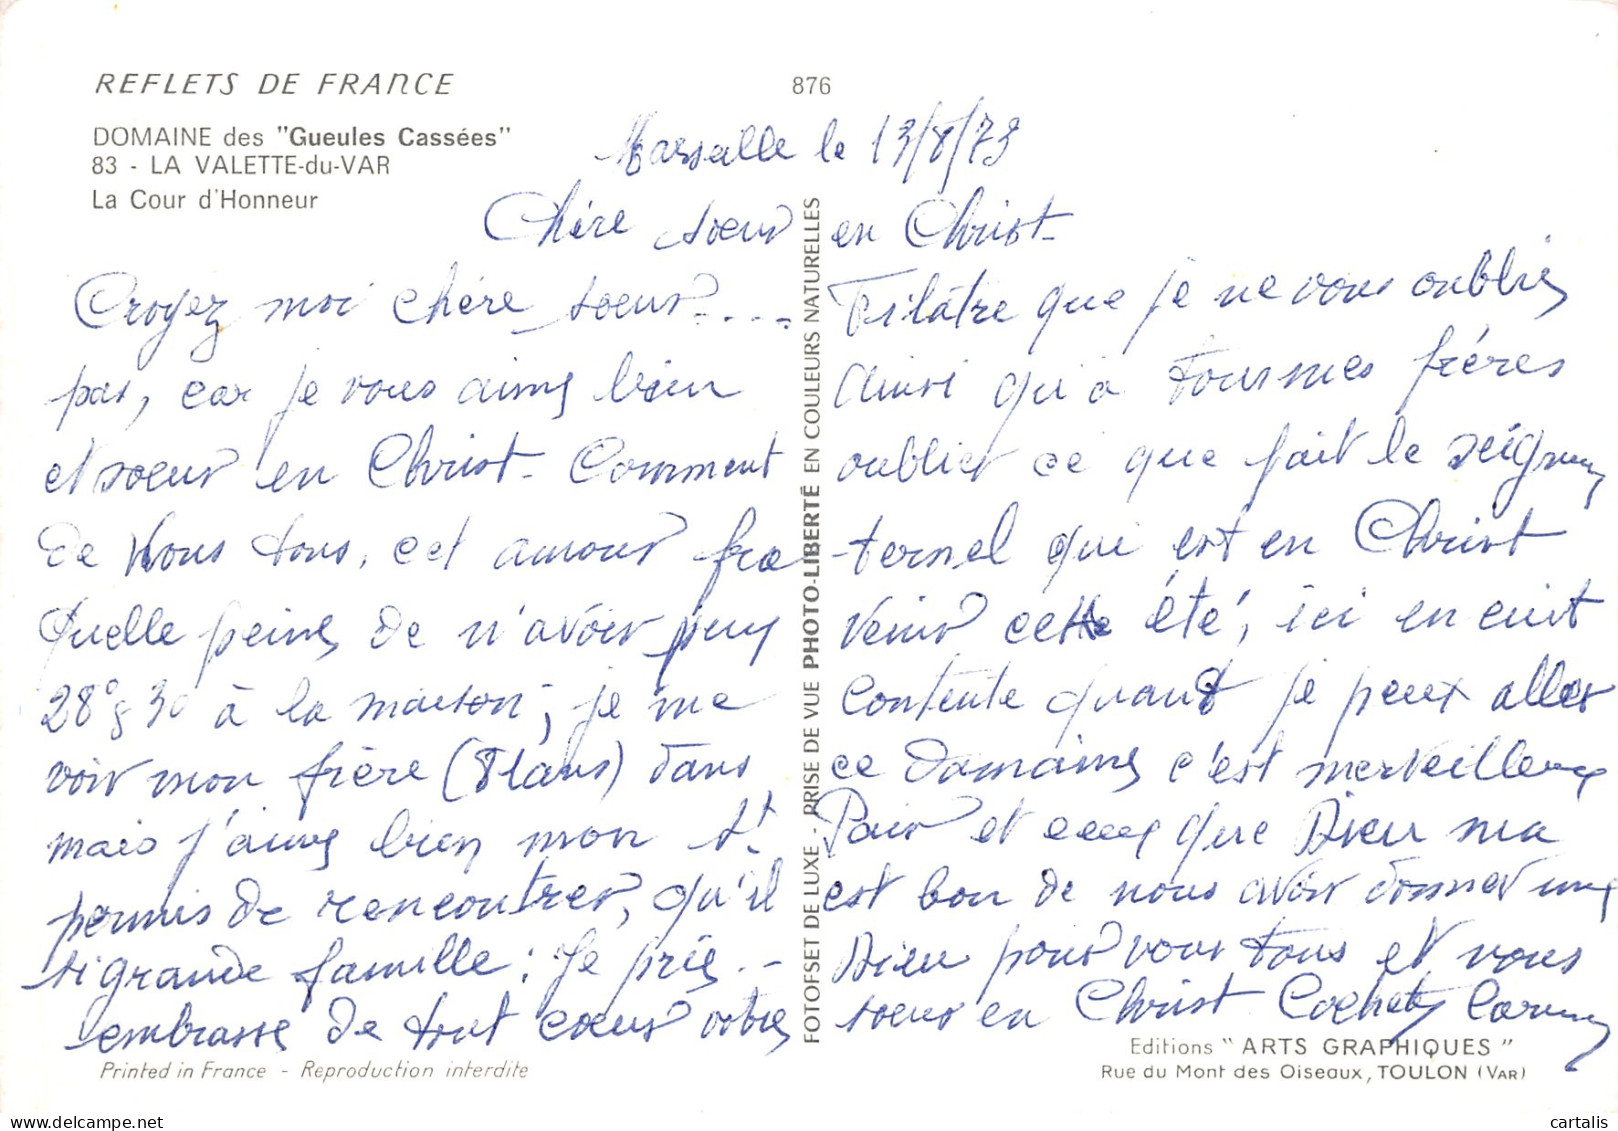 REFLETS DE FRANCE
876
DOMAINE des "Gueules Cassées"
83 - LA VALETTE-du-VAR
La Cour d'Honneur
Marseille le 13/8/73
Chère soeur en Christ-
Croyez moi chère soeur.... Filâtre que je ne vous oublie
pas, car je vous aime bien ainsi qu'à tous mes frères
et soeur en Christ. Comment oublier ce que fait le seigneur
de Vous tous, cet amour fra-ternel qui est en Christ
Quelle peine de n'avoir puy venir cette été, ici en cuit
28° 30 à la maison, je me contente quand je peux aller
voir mon frère dans ce Domaine c'est merveilleux
mais j'aime bien mon St. Pair et ceux que Dieu ma
permis de rencontrer, qu'il est bon de nous avoir donner une
si grande famille: Je prie -- Dieu pour vous tous et vous
embrasse de tout coeur votre soeur en Christ
FOTOFSET DE LUXE - PRISE DE VUE PHOTO-LIBERTÉ EN COULEURS NATURELLES
Printed in France - Reproduction interdite
Editions "ARTS GRAPHIQUES"
Rue du Mont des Oiseaux, TOULON (VAR)
cartalis